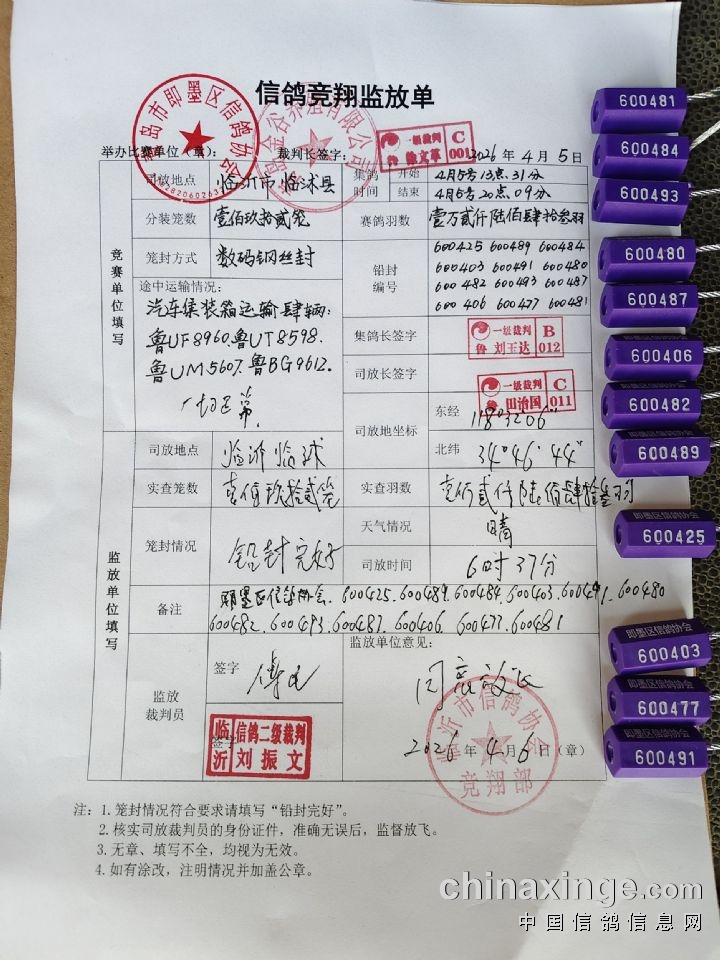 信鸽竞翔监放单
青岛市即墨区信鸽协会
举办比赛单位（章）：
裁判长签字：
一级裁判 C
鲁 001
2026年4月5日
竞赛单位填写
司放地点 临沂市临沭县
集鸽时间 开始 4月5号13点31分
结束 4月5号20点09分
分装笼数 壹佰玖拾贰笼
赛鸽羽数 壹万贰仟陆佰肆拾叁羽
笼封方式 数码钢丝封
铅封编号
600425 600489 600484
600403 600491 600480
600482 600493 600487
600406 600477 600481
途中运输情况：
汽车集装箱运输肆辆：
鲁UF8960.鲁UT8598.
鲁UM5607.鲁BG9612.
一切正常.
集鸽长签字 一级裁判 B
鲁 刘玉达 012
司放长签字 一级裁判 C
鲁 田治国 011
司放地坐标
东经 118°32′06″
北纬 34°46′44″
监放单位填写
司放地点 临沂临沭
实查笼数 壹佰玖拾贰笼
实查羽数 壹万贰仟陆佰肆拾叁羽
笼封情况 铅封完好
天气情况 晴
司放时间 6时37分
备注 即墨区信鸽协会.600425.600489.600484.600403.600491.600480
600482.600493.600487.600406.600477.600481
监放裁判员
签字
签字
临沂 信鸽二级裁判 刘振文
监放单位意见：
同意放飞
临沂市信鸽协会
竞翔部
2026年4月6日（章）
注：1.笼封情况符合要求请填写“铅封完好”。
2.核实司放裁判员的身份证件，准确无误后，监督放飞。
3.无章、填写不全，均视为无效。
4.如有涂改，注明情况并加盖公章。
600481
600484
600493
600480
600487
600406
600482
600489
即墨区信鸽协会
600425
即墨区信鸽协会
600403
即墨区信鸽协会
600477
即墨区信鸽协会
600491
chinaxinge.com
中国信鸽信息网